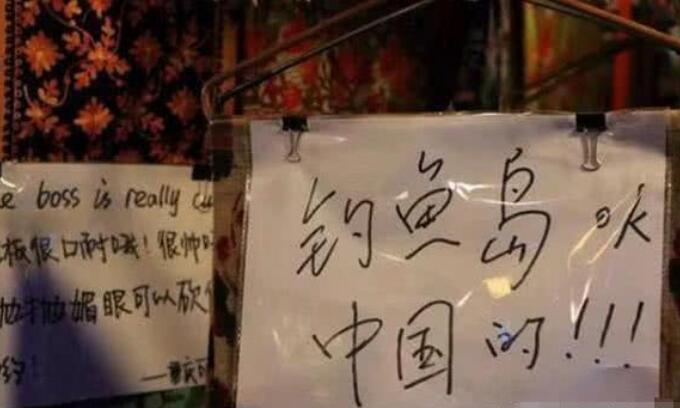 e boss is really
板很口耐哦！很帅
抛媚眼可以砍
——重庆
钓鱼岛是
中国的!!!